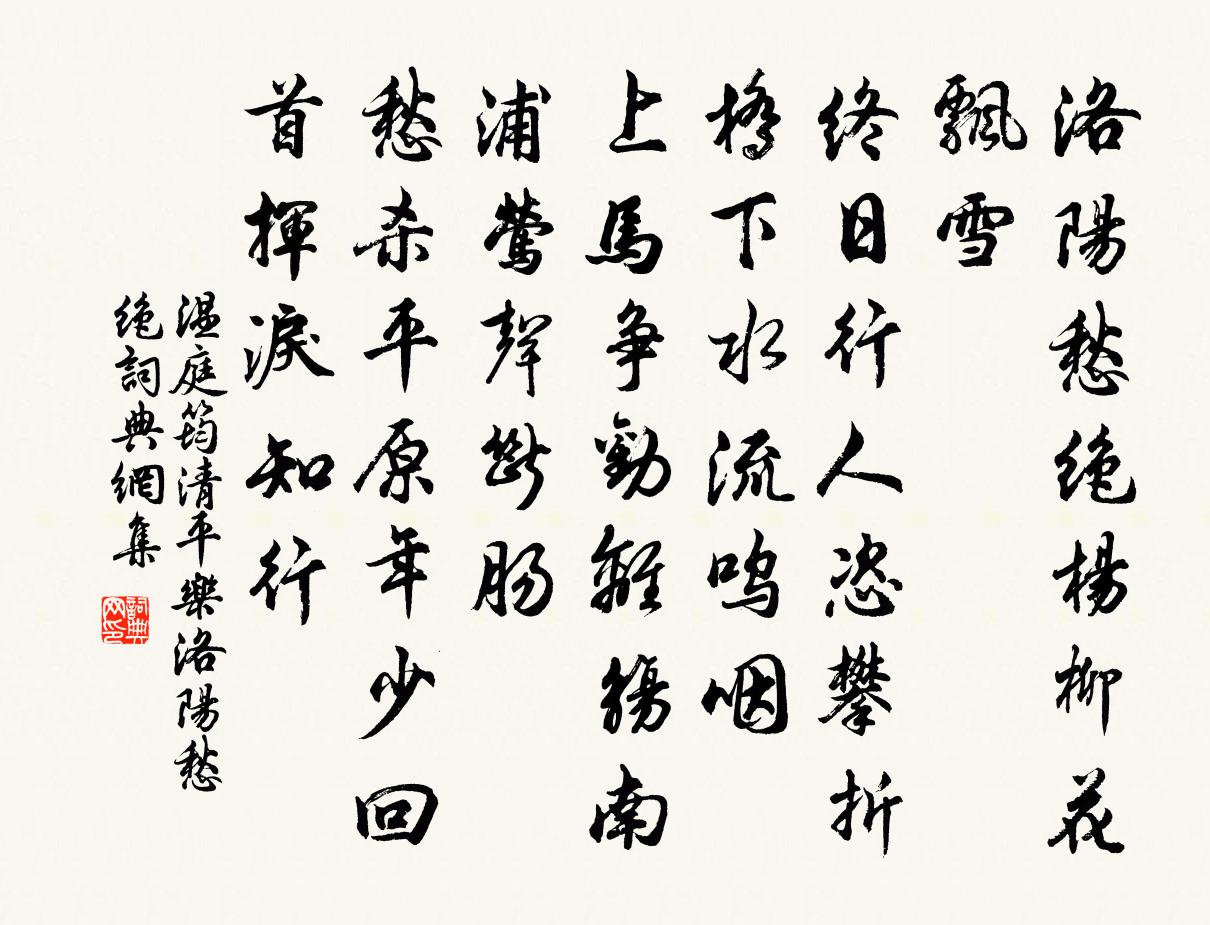 洛陽愁絕楊柳花
飄雪
終日行人恣攀折
橋下水流嗚咽
上馬爭勸離觴南
浦鶯聲斷腸
愁杀平原年少回
首揮淚知行
温庭筠清平樂洛陽愁
绝詞典網集
詞典
网印